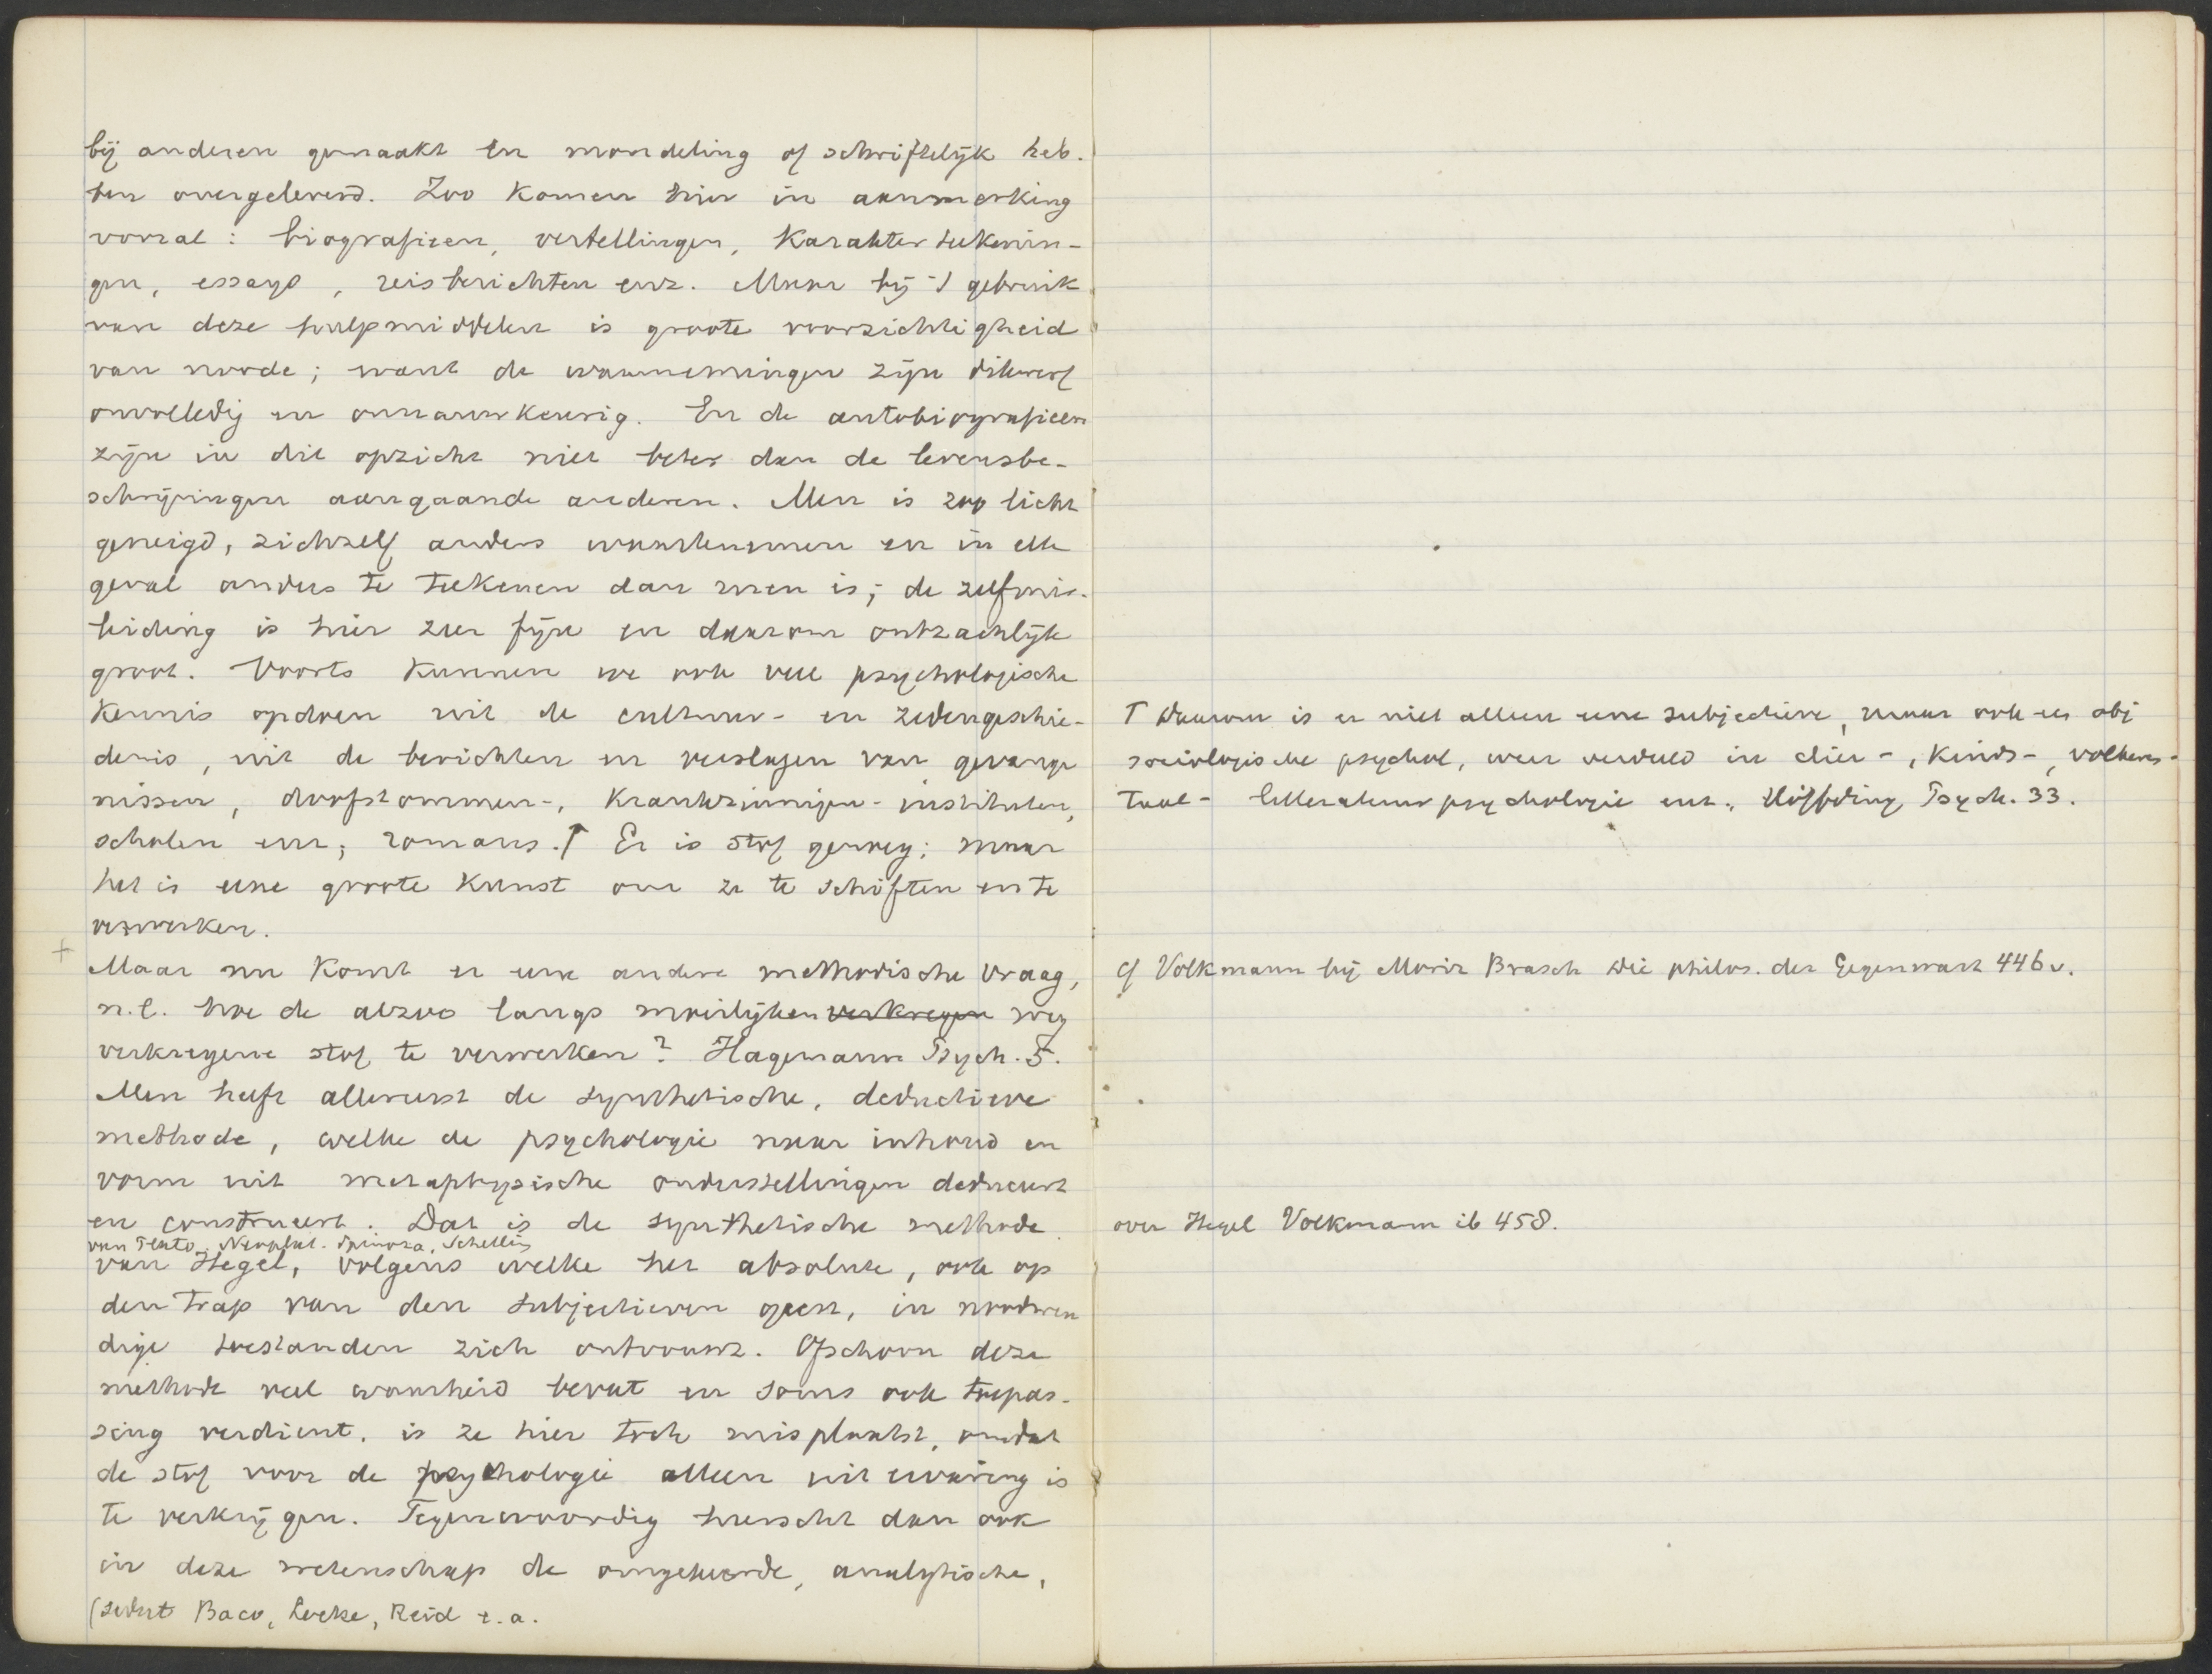 bij anderen gemaakt en mondeling of schriftelijk heb-
ben overgeleverd. Zoo komen hier in aanmerking
vooral: biografieen, vertellingen, karakterteekenin-
gen, essays, reisberichten enz. Maar bij 't gebruik
van deze hulpmiddelen is groote voorzichtigheid
van noode; want de waarnemingen zijn dikwerf
onvolledig en onnauwkeurig. En de autobiografieen
zijn in dit opzicht niet beter dan de levensbe-
schrijvingen aangaande anderen. Men is zoo licht
geneigd, zichzelf anders waartenemen en in elk
geval anders te teekenen dan men is; de zelfmis-
leiding is hier zeer fijn en daarom ontzachlijk
groot. Voorts kunnen we ook veel psychologische
kennis opdoen uit de cultuur- en zedengeschie-
denis, uit de berichten en verslagen van gevange
nissen, doofstommen-, krankzinnigen-instituten,
scholen enz; romans.↑ Er is stof genoeg; maar
het is eene groote kunst om ze te schiften en te
verwerken.
+
Maar nu komt er eene andere methodische vraag,
n.l. hoe de alzoo langs moeilijken verkregen weg
verkregene stof te verwerken? Hagemann Psych. 5.
Men heeft allereerst de synthetische, deductieve
methode, welke de psychologie naar inhoud en
vorm uit metaphysische onderstellingen deduceert
en construeert. Dat is de synthetische methode
van Plato, Neoplat. Spinoza, Schelling
van Hegel, volgens welke het absolute, ook op
den trap van den subjectieven geest, in noodwen
dige toestanden zich ontvouwt. Ofschoon deze
methode veel waarheid bevat en soms ook toepas-
sing verdient, is ze hier toch misplaatst, omdat
de stof voor de psychologie alleen uit ervaring is
te verkrijgen. Tegenwoordig heerscht dan ook
in deze wetenschap de omgekeerde, analytische,
(sedert Baco, Locke, Reid e.a.
↑ Daarom is er niet alleen eene subjectieve, maar ook een obj
sociologische psychol, weer verdeeld in dier-, kinds-, volkens-
taal- litteratuurpsychologie enz., Höffding Psych. 33.
cf Volkmann bij Moriz Brasch die philos. der Gegenwart 446 v.
over Hegel Volkmann ib 458.